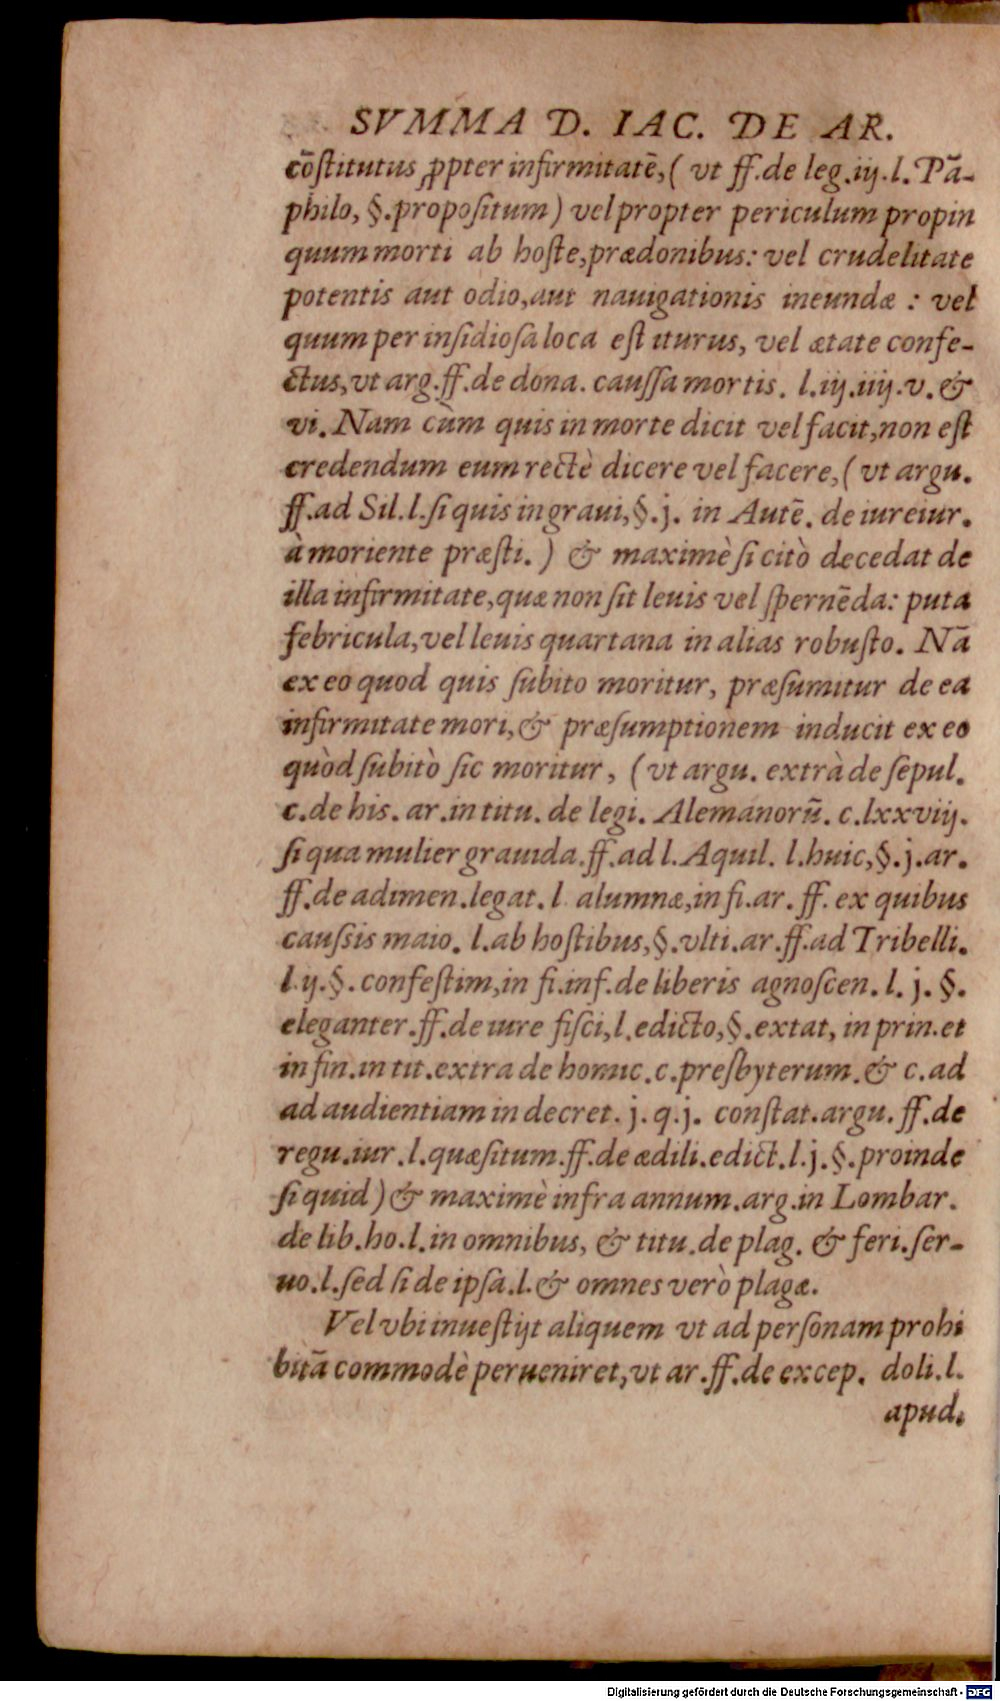 SVMMA D. IAC. DE AR.
cōſtitutus ꝓpter infirmitatē, ( vt ff. de leg. iij. l. Pā-
philo, §. propoſitum) vel propter periculum propin
quum morti ab hoſte, prædonibus: vel crudelitate
potentis aut odio, aut nauigationis ineundæ : vel
quum per inſidioſa loca eſt iturus, vel ætate confe-
ctus, vt arg. ff. de dona. cauſſa mortis. l. iij. iiij. v. &
vi. Nam cùm quis in morte dicit vel facit, non eſt
credendum eum rectè dicere vel facere, ( vt argu.
ff. ad Sil. l. ſi quis in graui, §. j. in Autē. de iureiur.
à moriente præſti. ) & maximè ſi citò decedat de
illa infirmitate, quæ non ſit leuis vel ſpernēda: puta
febricula, vel leuis quartana in alias robuſto. Nā
ex eo quod quis ſubito moritur, præſumitur de ea
infirmitate mori, & præſumptionem inducit ex eo
quòd ſubitò ſic moritur, (vt argu. extrà de ſepul.
c. de his. ar. in titu. de legi. Alemanorū. c. lxxviij.
ſi qua mulier grauida. ff. ad l. Aquil. l. huic, §. j. ar.
ff. de adimen. legat. l alumnæ, in fi. ar. ff. ex quibus
cauſsis maio. l. ab hoſtibus, §. vlti. ar. ff. ad Tribelli.
l. ij. §. confeſtim, in fi. inf. de liberis agnoſcen. l. j. §.
eleganter. ff. de iure fiſci, l. edicto, §. extat, in prin. et
in fin. in tit. extra de homic. c. preſbyterum. & c. ad
ad audientiam in decret. j. q. j. conſtat. argu. ff. de
regu. iur. l. quæſitum. ff. de ædili. edict. l. j. §. proinde
ſi quid) & maximè infra annum. arg. in Lombar.
de lib. ho. l. in omnibus, & titu. de plag. & feri. ſer-
uo. l. ſed ſi de ipſa. l. & omnes verò plagæ.
Vel vbi inueſtijt aliquem vt ad perſonam prohi
bitā commodè perueniret, vt ar. ff. de excep. doli. l.
apud.
Digitalisierung gefördert durch die Deutsche Forschungsgemeinschaft - DFG